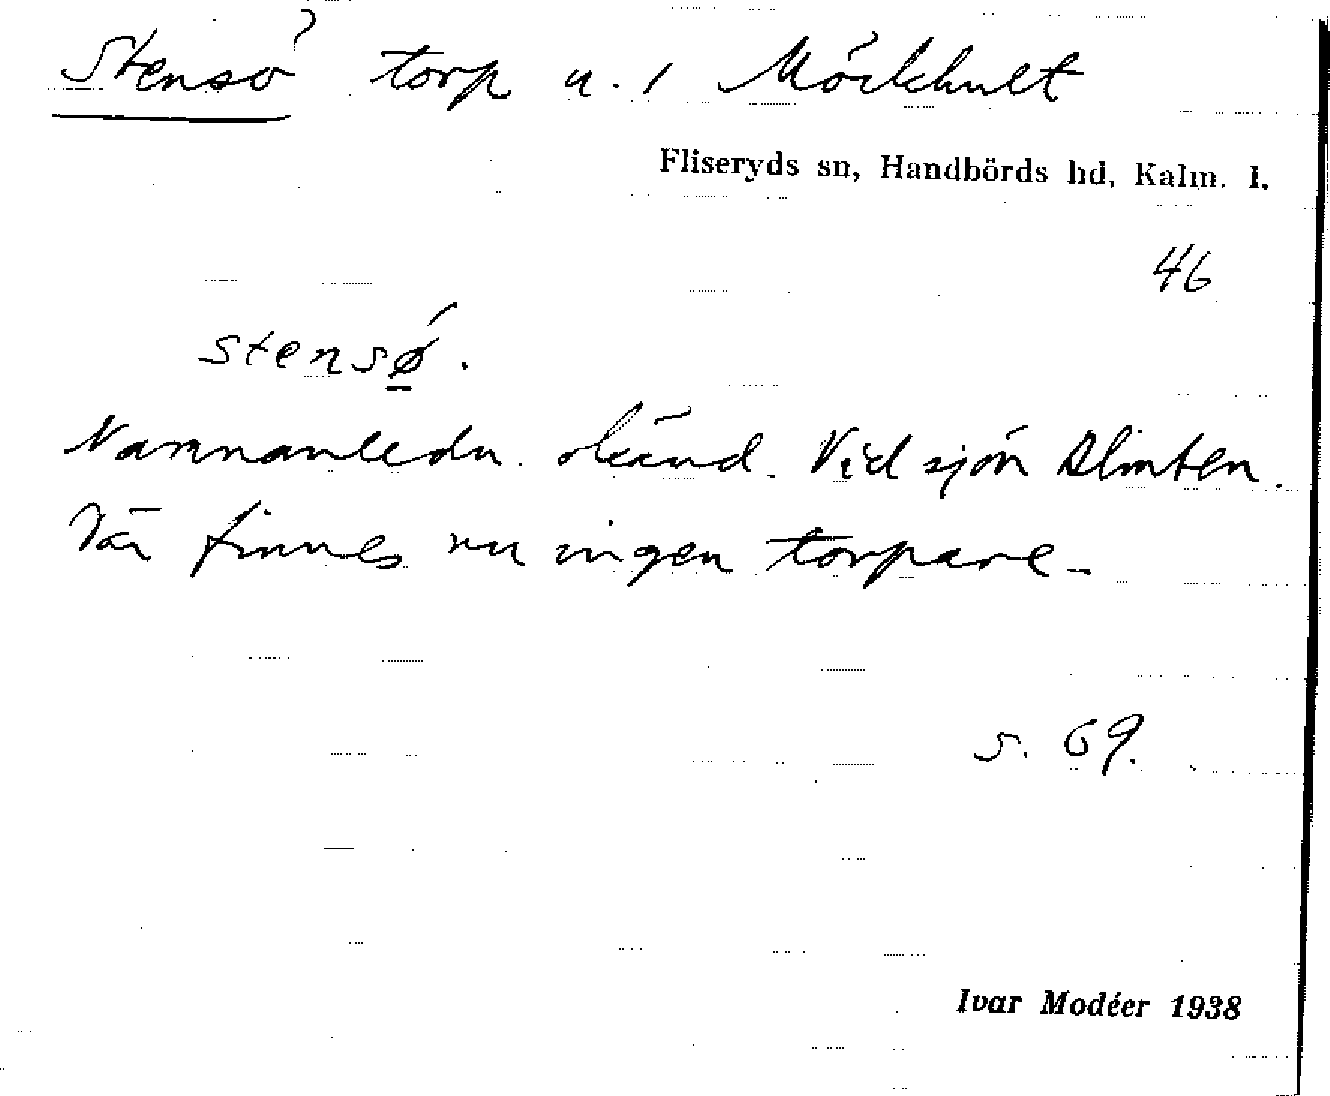 Stensö torp u. 1 Mörkhult
Fliseryds sn, Handbörds hd, Kalm. l.
46
stensǿ.
Namnanledn. okänd. Vid sjön Allmten.
Där finnes nu ingen torpare.
s. 69.
Ivar Modéer 1938